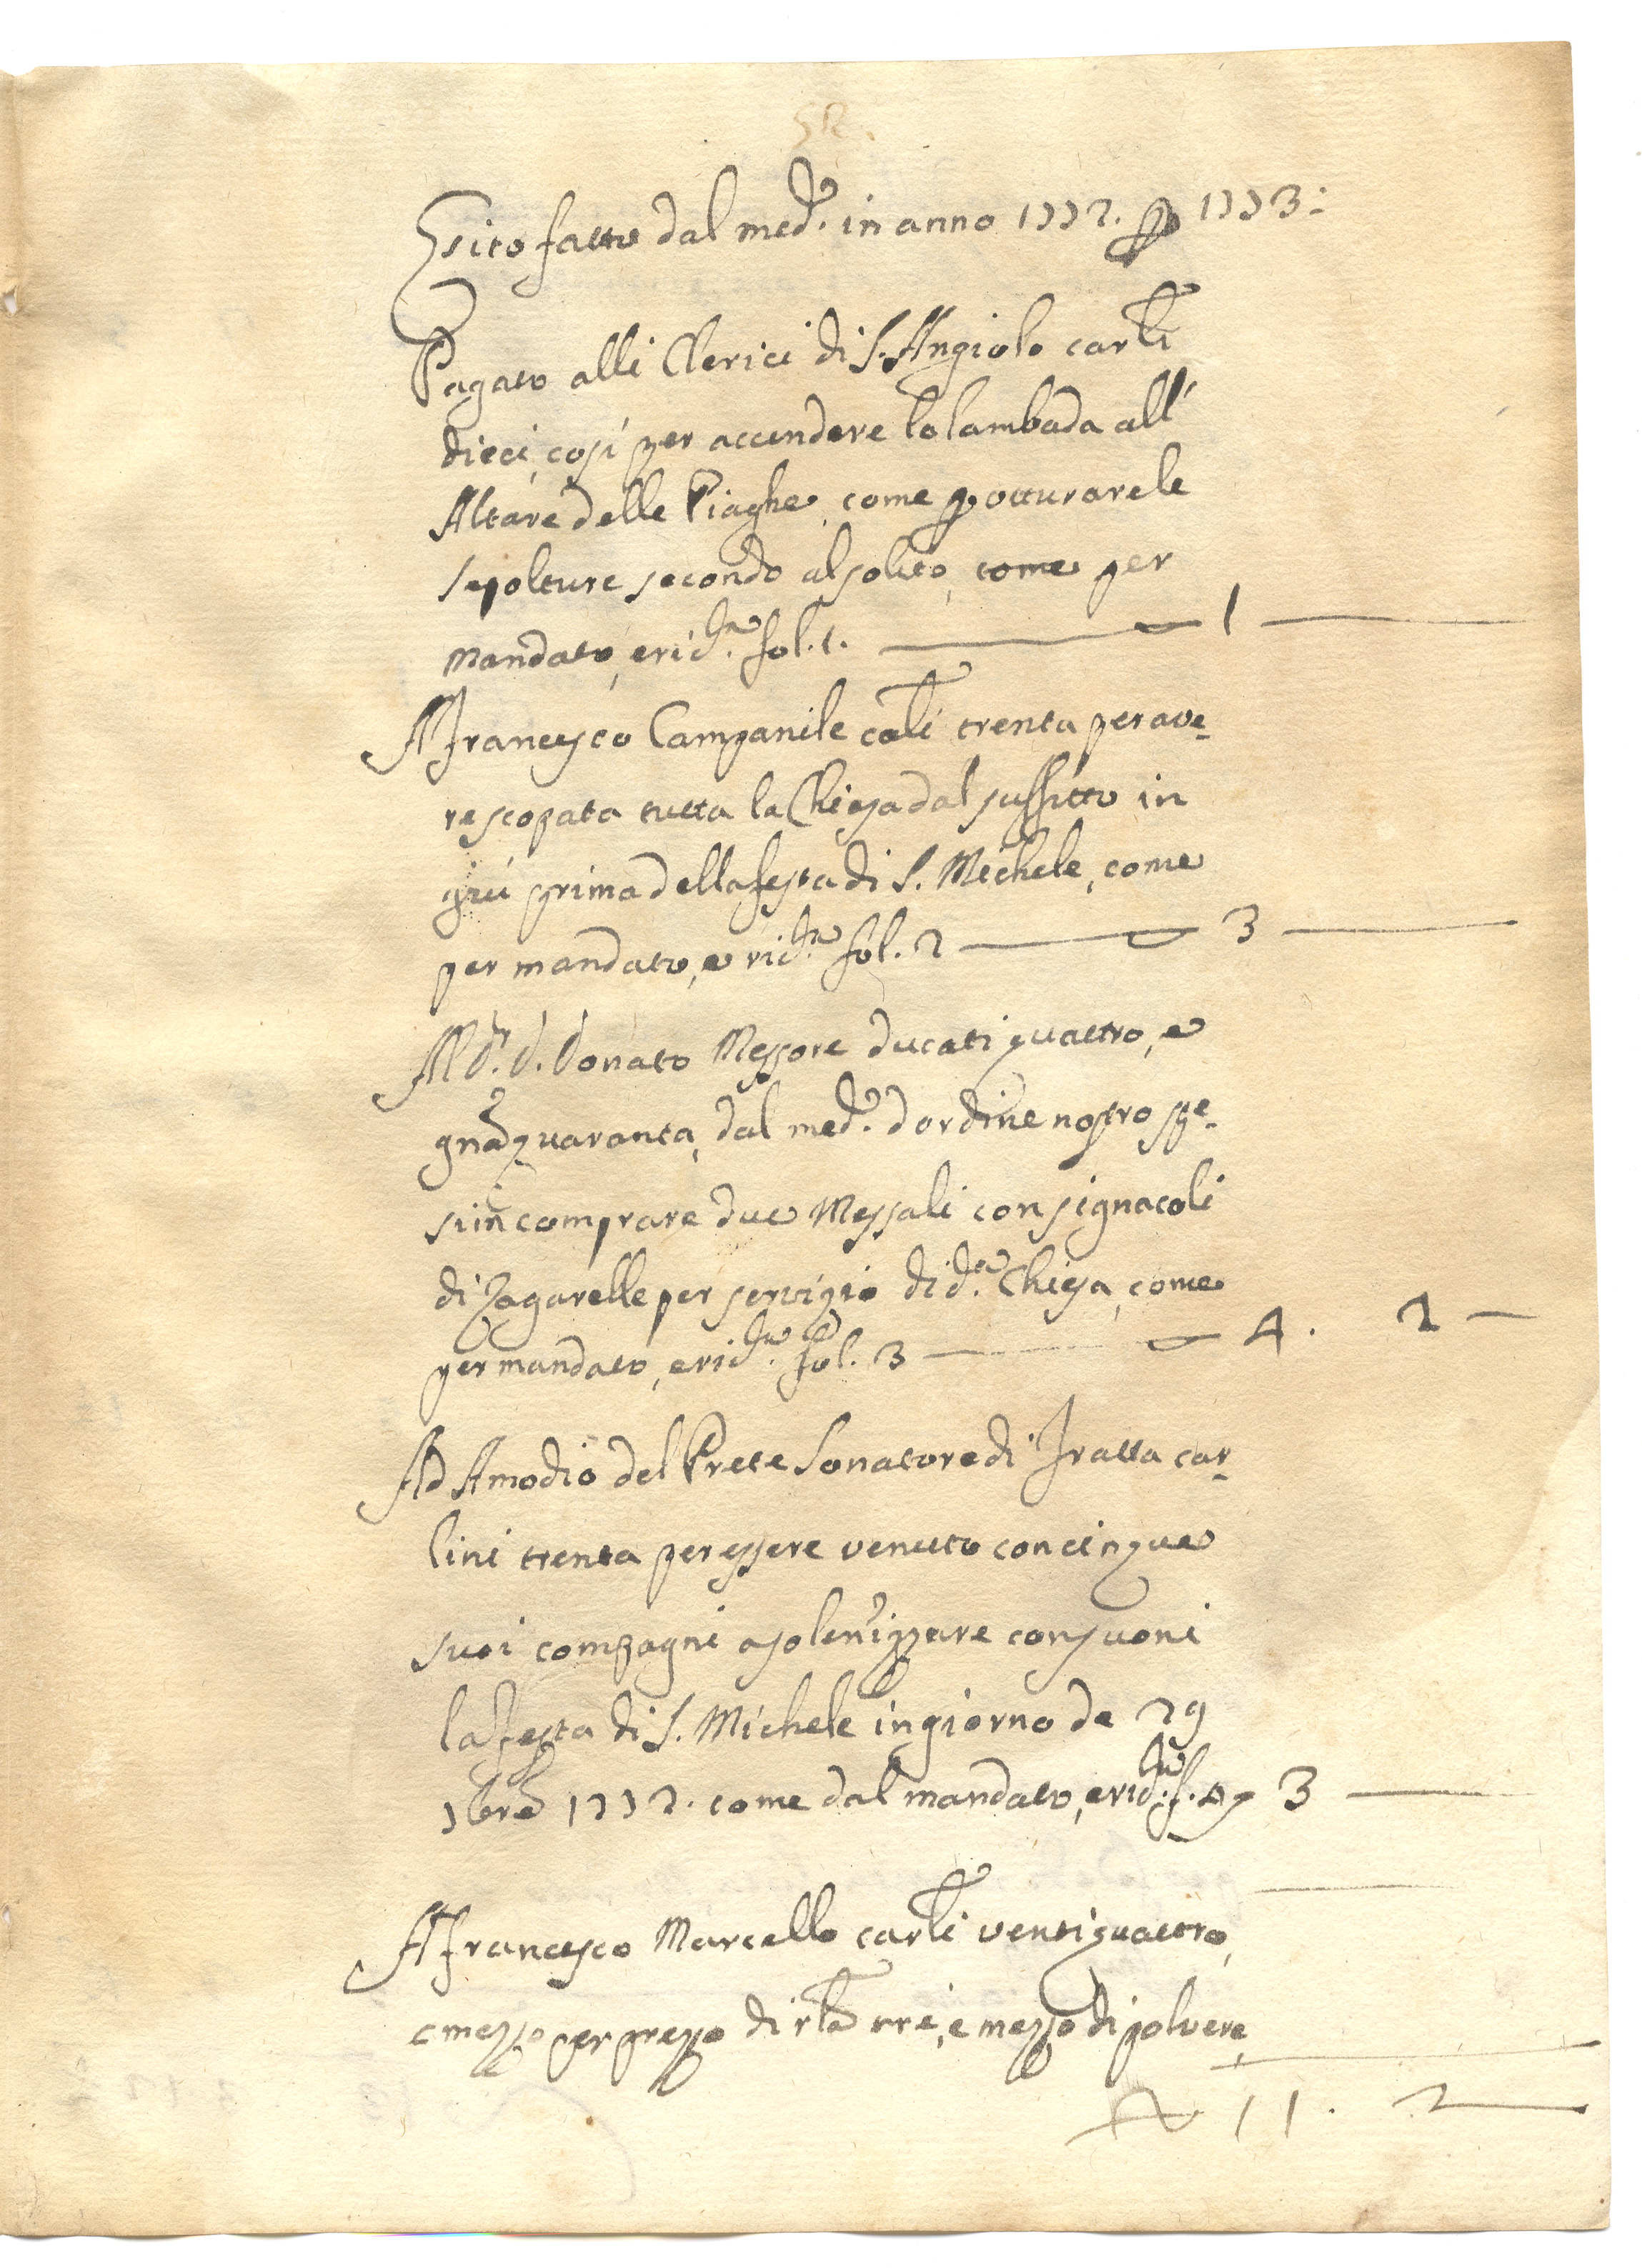 52.
Esito fatto dal med.o in anno 1772. p 1773:
Pagato alli Clerici di S. Angiolo carli
dieci, così per accendere lo lambada all'
Altare delle Piaghe, come p otturare le
sepolture secondo al solito, come per
mandato, e ric.ta fol. 1. 1
A Francesco Campanile cali trenta per ave-
re scopata tutta la Chiesa dal suffitto in
giù prima della festa di S. Michele, come
per mandato, e ric.ta fol. 2 3
Al D.r D. Donato Messore ducati quattro, e
gna quaranta, dal med.o d'ordine nostro spe-
si in comprare due Messali con signacoli
di Zagarelle per servizio di d.a Chiesa, come
per mandato, e ric.ta fol. 3 4. 2
Ad Amodio del Prete Sonatore di Fratta car-
lini trenta per essere venuto con cinque
suoi compagni a solennizzare con suoni
la festa di S. Michele in giorno de 29
7bre 1772. come dal mandato, e ric.ta f. 4 3
A Francesco Marcello carli ventiquattro,
e mezzo per prezzo di rla tre, e mezzo di polvere,
11. 2